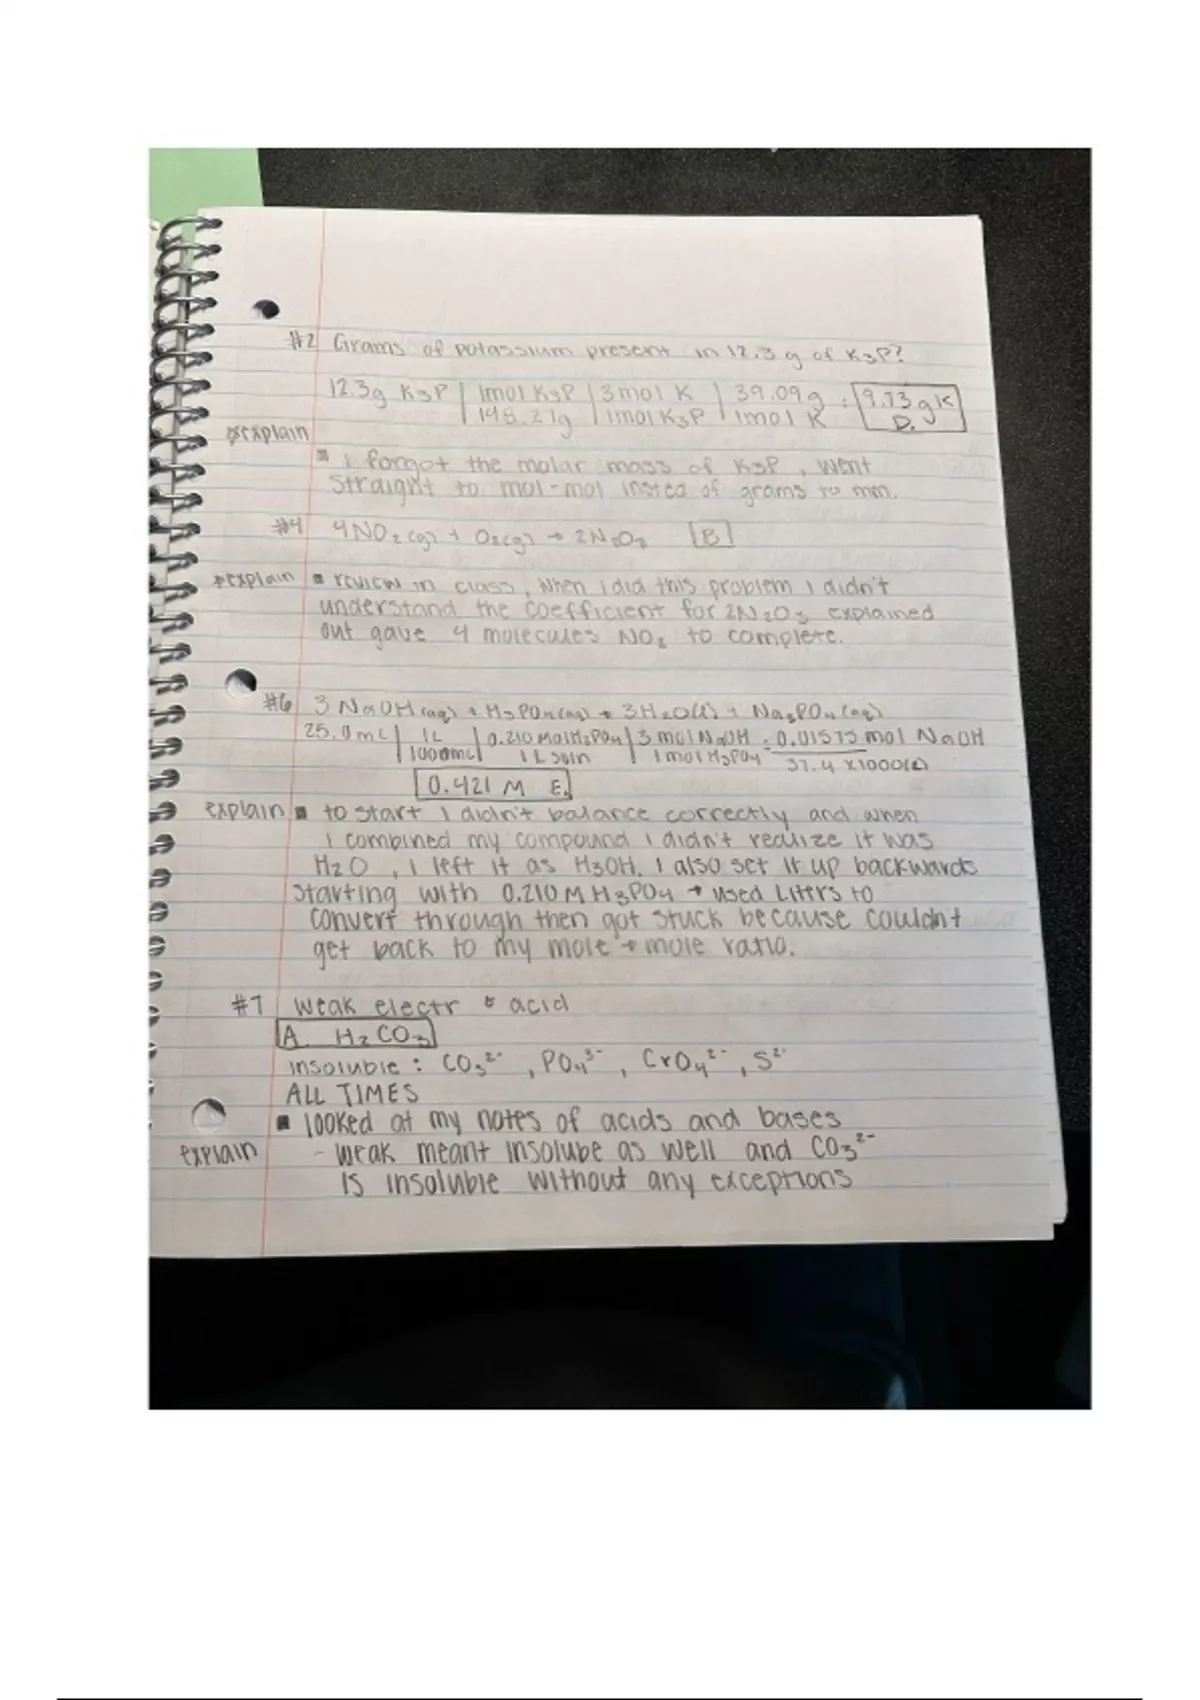 #2 Grams of potassium present in 12.3 g of K₃P?
12.3g K₃P | 1mol K₃P | 3 mol K | 39.09 g = 9.73 g K
148.27g | 1mol K₃P | 1mol K D.
*explain
▪ I forgot the molar mass of K₃P, went
straight to mol-mol insted of grams to mm.
#4 4NO₂(g) + O₂(g) → 2N₂O₅ B
*explain ▪ review in class, when I did this problem I didn't
understand the coefficient for 2N₂O₅ explained
out gave 4 molecules NO₂ to complete.
#6 3 NaOH(aq) + H₃PO₄(aq) → 3H₂O(l) + Na₃PO₄(aq)
25.0mL | 1L | 0.210 mol H₃PO₄ | 3 mol NaOH = 0.01575 mol NaOH
1000mL | 1L soln | 1 mol H₃PO₄ 37.4 x1000(L)
0.421 M E.
explain ▪ to start I didn't balance correctly and when
I combined my compound I didn't realize it was
H₂O, I left it as H₃OH. I also set it up backwards
starting with 0.210 M H₃PO₄ → used Liters to
convert through then got stuck because couldn't
get back to my mole → mole ratio.
#7 weak electr & acid
A. H₂CO₃
insoluble : CO₃²⁻, PO₄³⁻, CrO₄²⁻, S²⁻
ALL TIMES
▪ looked at my notes of acids and bases
explain - weak meant insolube as well and CO₃²⁻
is insoluble without any exceptions